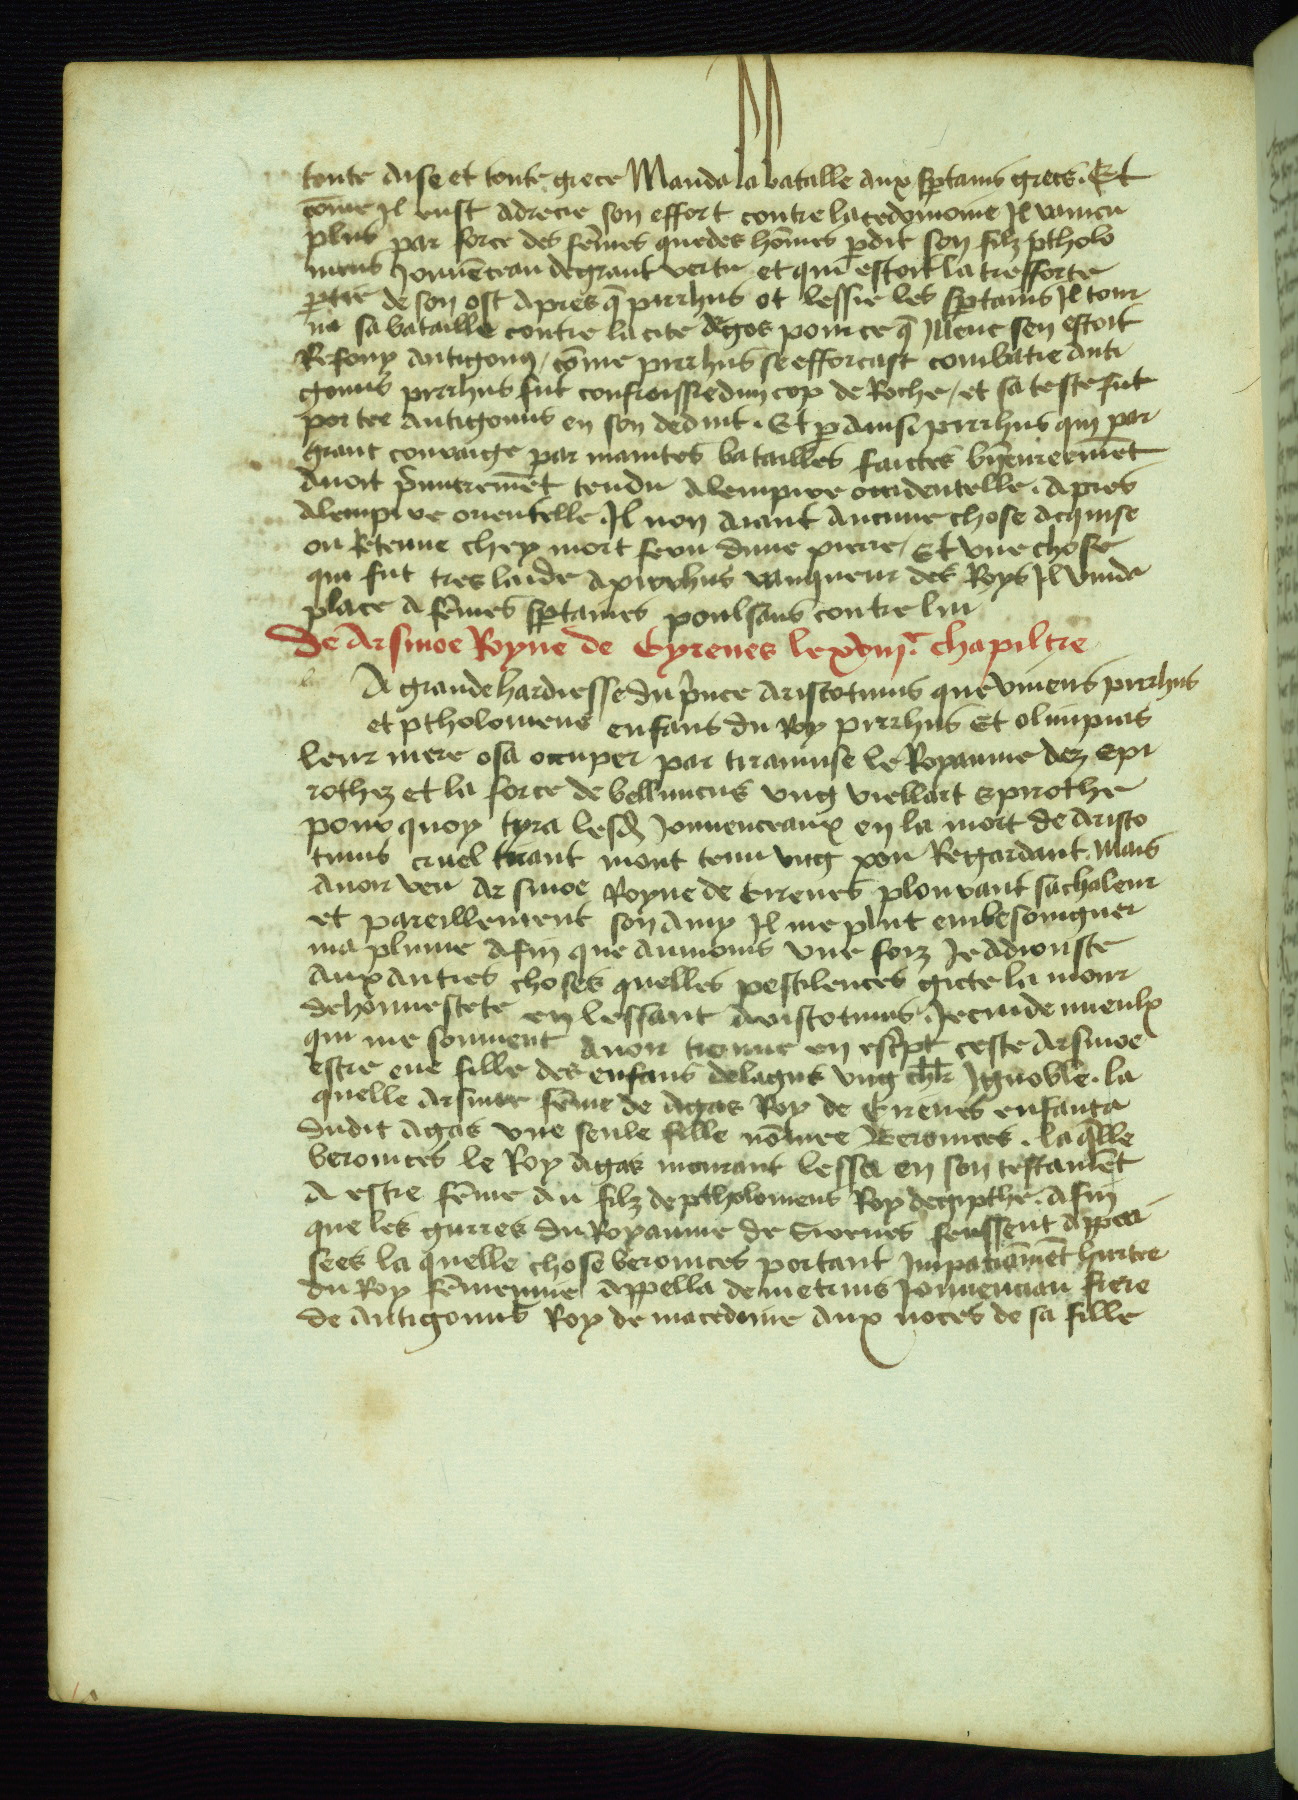 toute aise et toute grece Manda la bataille aux sp̱tains grecs. Et
cōme Il eust adrecie son effort contre lacedomoine Il vaincu
plus par force des fēmes que des hōmes ꝑdit son filz ptholo
meus Jouuēceau de grant vertu et qui estoit la tresforte
ꝑtie de son ost apres q̄ pirrhus ot lessie les sp̱tains Il tour
na sa bataille contre la cite dargos pour ce q̄ Illenc sen estoit
Refouy antigonus / cōme pirrhus se efforcast combatre anti
gonus pirrhus fut confroissie dun cop de Roche / et sa teste fut
portee antigonus en son deduit. Et ꝑ ainsi pirrhus qui par
grant couraige par maintes batailles faictes
auoit tendu a lempire occidentelle. apres
a lempire orientelle. Il non aiant aucune chose acquise
ou Retenue chey mort feru dune pierre / Et vne chose
qui fut tres laide a pirrhus vainqueur des Roys Il vuida
place a fēmes sp̱taines poulsans contre lui
De Arsinoe Royne de Cyrenes le xviij.e chapiltre
A grande hardiesse du p̄nce aristotimus que viuens pirrhus
et ptholomeus enfans du Roy pirrhus Et olimpias
leur mere osa occuper par tirannise le Royaume dez Epi
rothez et la force de bellinicus vng viellart Epirothe
pour quoy tyra lesd. Jouuenceaux en la mort de aristo
timus cruel tirant mont tenu vng pou Regardant. Mais
auoir veu arsinoe Royne de Cirenes plourant sa chaleur
et pareillement son amy Il me plut embesoingner
ma plume afin que aumoins vne foiz Je adiouste
aux autres choses quelles pestilences gicte la mour
dehonnestete en lessant aristotimus. Je cuide mieulx
qui me souuient auoir trouue en escript ceste arsinoe
estre eue fille des enfans de lagus vng ch̄lr Ignoble. la
quelle arsinoe fēme de agas Roy de Cirenes enfanta
dudit agas vne seule fille nōmee Beronices. laq̄lle
beronices le Roy agas mourant lessa en son testamēt
a estre fēme au filz de ptholomeus Roy degipthe. afin
que les gurres du Royaume de Sirenes feussent appai
sees la quelle chose beronices portant Impaciāmēt
du Roy appella demetrius Jouuenciau frere
de antigonus Roy de macedoine aux noces de sa fille